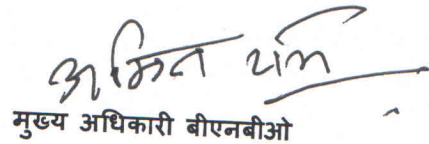 अमित
मुख्य अधिकारी बीएनबीओ